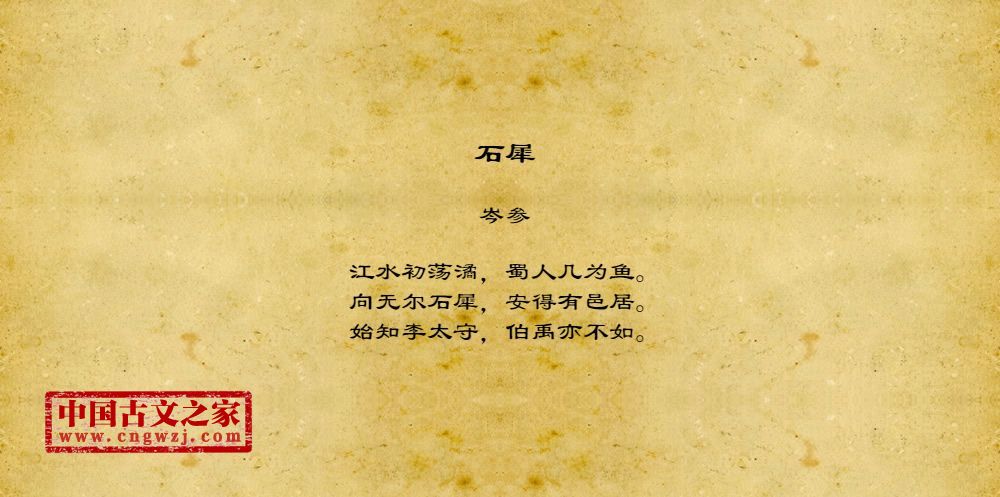 石犀
岑参
江水初荡潏，蜀人几为鱼。
向无尔石犀，安得有邑居。
始知李太守，伯禹亦不如。
中国古文之家
www.cngwzj.com